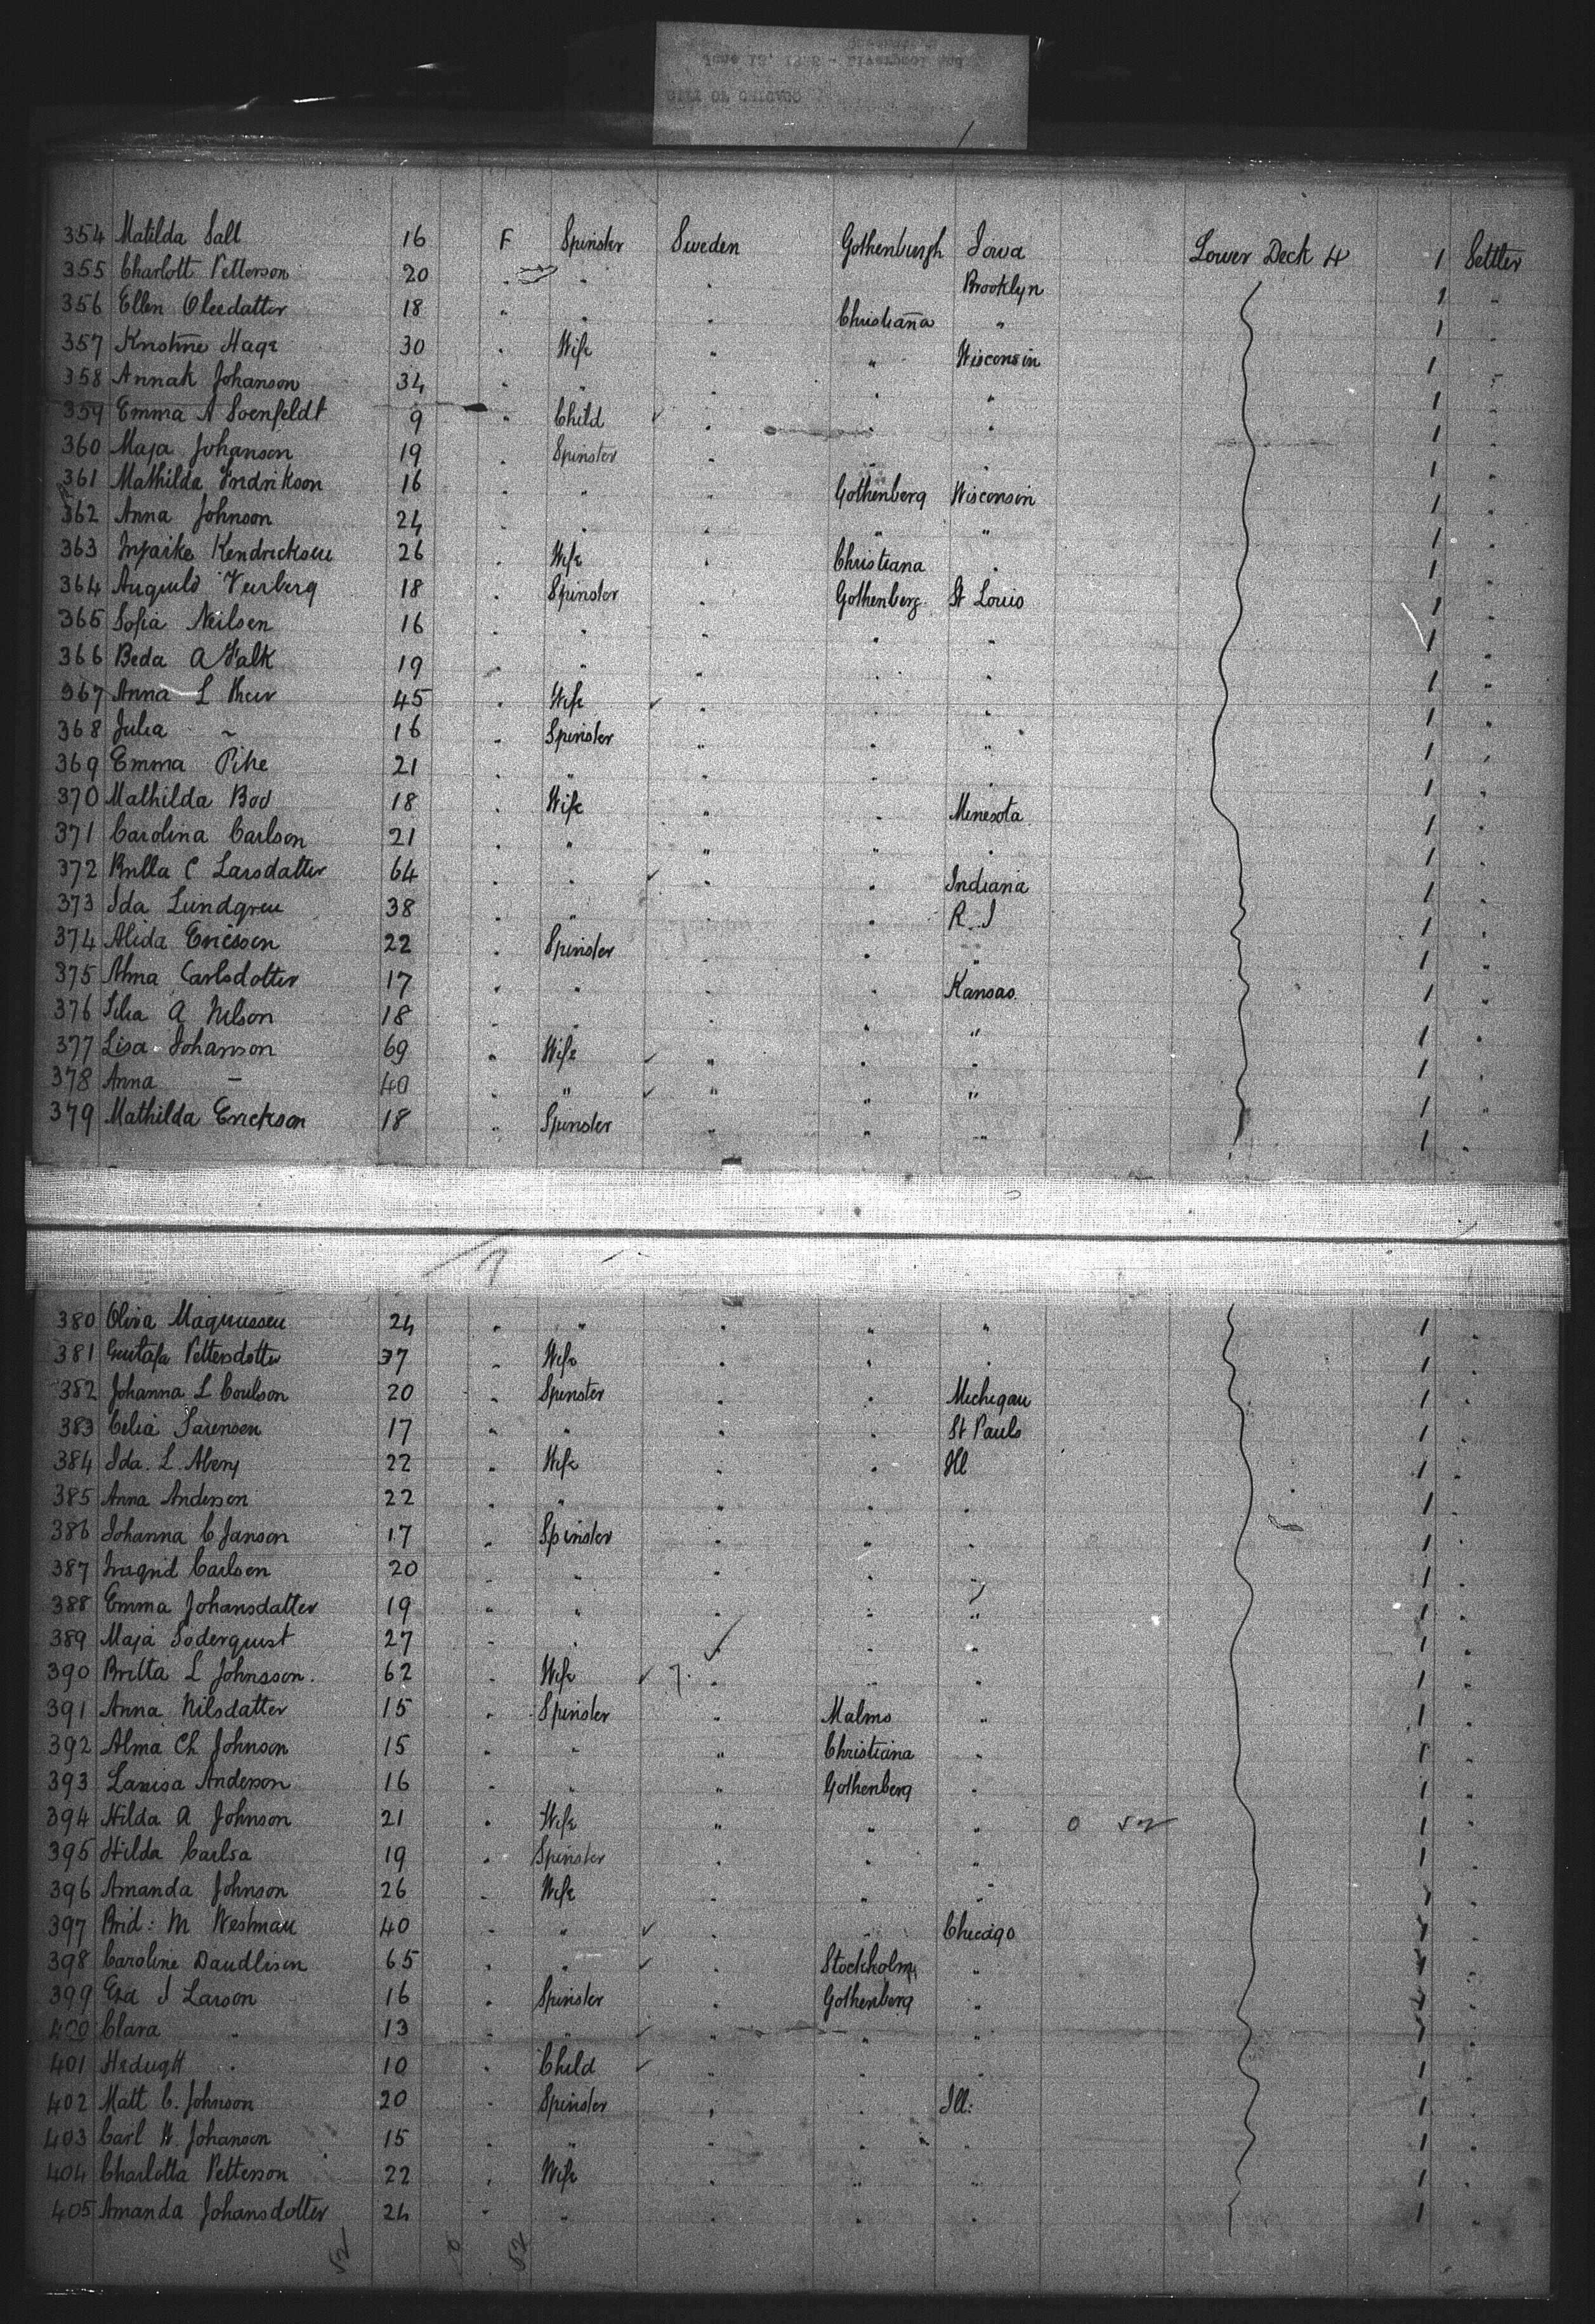 354 Matilda Sall 16 F Spinster Sweden Gothenburgh Iowa Lower Deck 4 1 Settler
355 Charlott Petterson 20 " " " Brooklyn 1 "
356 Ellen Olesdatter 18 " " " Christiana " 1 "
357 Kristine Hage 30 " Wife " " Wisconsin 1 "
358 Annak Johanson 34 " " " " 1 "
359 Emma A Soenfeldt 9 " Child " " " 1 "
360 Maja Johanson 19 " Spinster " " " 1 "
361 Mathilda Fredrikson 16 " " " Gothenberg Wisconsin 1 "
362 Anna Johnson 24 " " " " " 1 "
363 Kendricksen 26 " Wife " Christiana " 1 "
364 18 " Spinster " Gothenberg St Louis 1 "
365 Sofia Neilsen 16 " " " " " 1 "
366 Beda A Falk 19 " " " " 1 "
367 Anna L 45 " Wife " " 1 "
368 Julia ~ 16 " Spinster " " " 1 "
369 Emma Pihe 21 " " " " 1 "
370 Mathilda Bod 18 " Wife " " Minesota 1 "
371 Carolina Carlson 21 " " " " " 1 "
372 C Larsdatter 64 " " " " Indiana 1 "
373 Ida Lundgren 38 " " " R. I 1 "
374 Alida Ericsson 22 " Spinster " " " 1 "
375 Alma Carlsdotter 17 " " " " Kansas 1 "
376 A Nilson 18 " " " " " 1 "
377 Lisa Johanson 69 " Wife " " " 1 "
378 Anna — 40 " " " " " 1 "
379 Mathilda Erickson 18 " Spinster " " " 1 "
380 Oliva Magnussen 24 " " " " " 1 "
381 Gustafa Pettersdotter 37 " Wife " " " 1 "
382 Johanna L Coulson 20 " Spinster " " Michigan 1 "
383 Celia Sarensen 17 " " " " St Pauls 1 "
384 Ida. L. Aberg 22 " Wife " " Ill 1 "
385 Anna Andersen 22 " " " " " 1 "
386 Johanna C Janson 17 " Spinster " " " 1 "
387 Ingrid Carlsen 20 " " " " " 1 "
388 Emma Johansdatter 19 " " " " " 1 "
389 Maja Soderquist 27 " " " " " 1 "
390 Britta L Johnsson. 62 " Wife " " " 1 "
391 Anna Nilsdatter 15 " Spinster " Malmo " 1 "
392 Alma Ch Johnson 15 " " " Christiana " 1 "
393 Anderson 16 " " " Gothenberg " 1 "
394 Hilda A Johnson 21 " Wife " " " 0 1 "
395 Hilda Carlsa 19 " Spinster " " " 1 "
396 Amanda Johnson 26 " Wife " " " 1 "
397 Brid: M Westman 40 " " " " Chicago 1 "
398 Caroline Daudlisen 65 " " " Stockholm " 1 "
399 J Larson 16 " Spinster " Gothenberg " 1 "
400 Clara " 13 " " " " " 1 "
401 " 10 " Child " " " 1 "
402 Matt C. Johnson 20 " Spinster " " Ill: 1 "
403 Carl H. Johanson 15 " " " " " 1 "
404 Charlotta Petterson 22 " Wife " " " 1 "
405 Amanda Johansdotter 24 " " " " " 1 "